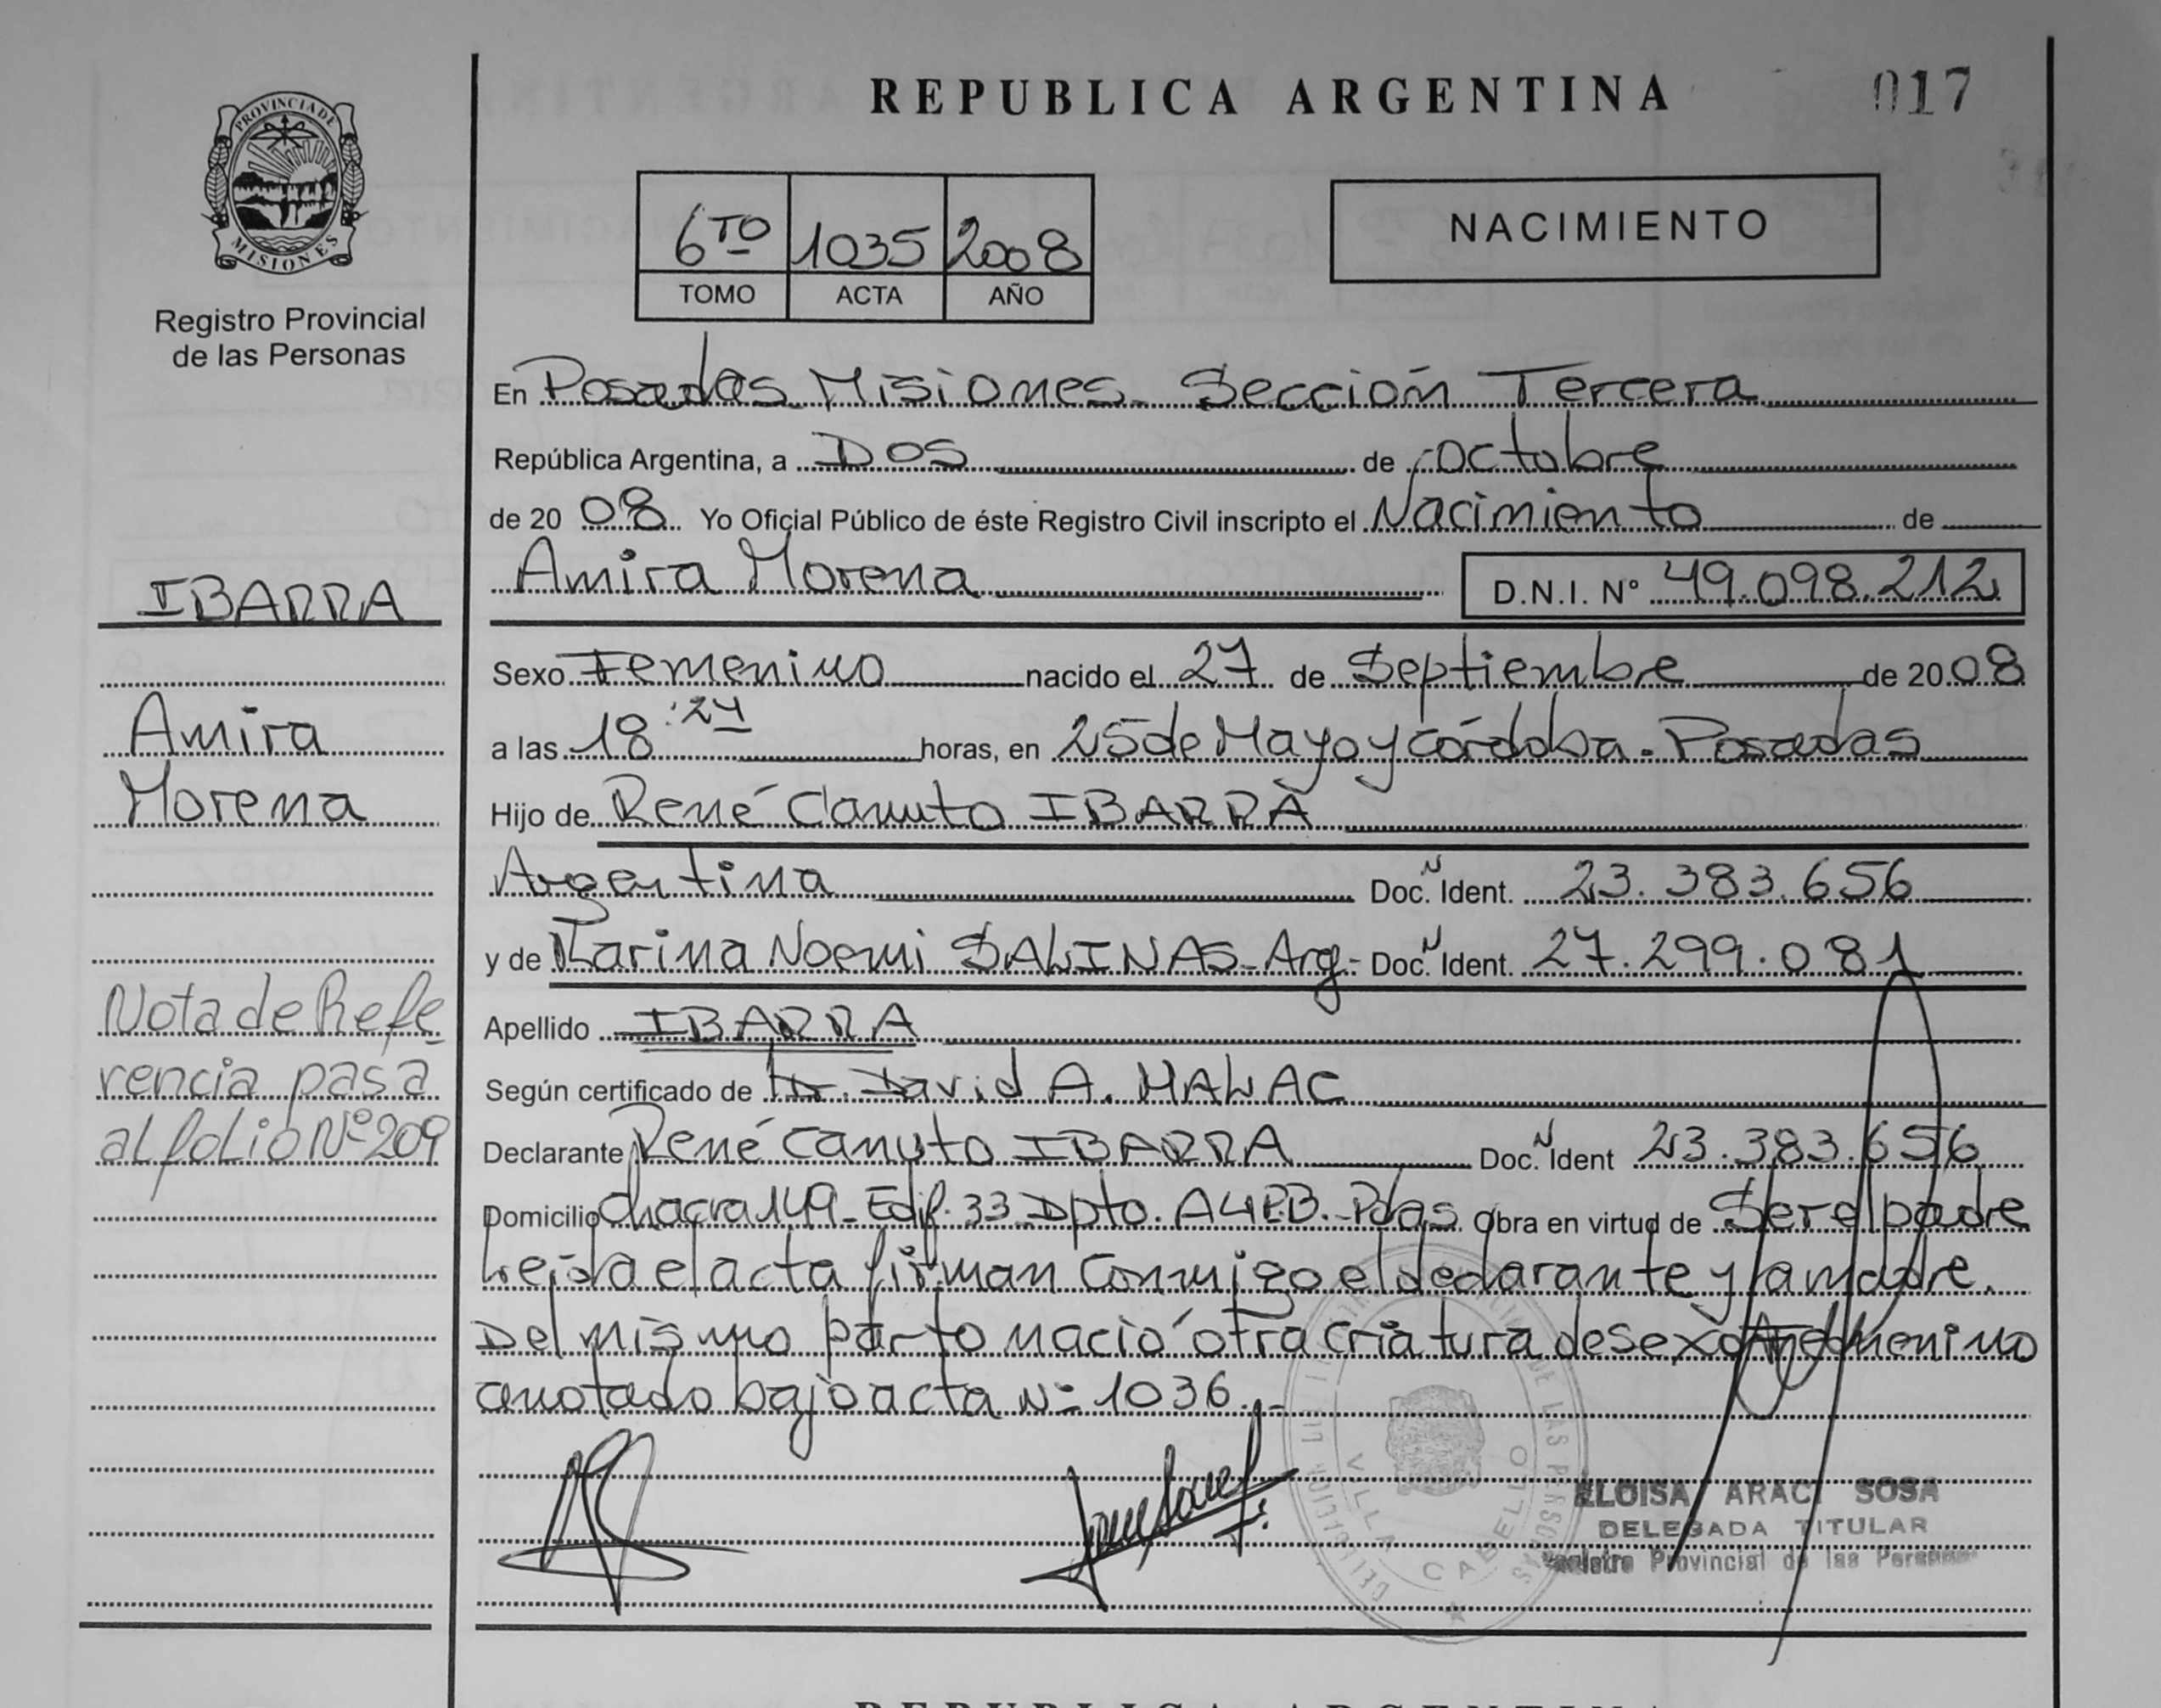 REPUBLICA ARGENTINA
017
PROVINCIA DE
MISIONES
Registro Provincial
de las Personas
6TO 1035 2008
TOMO ACTA AÑO
NACIMIENTO
En Posadas Misiones - Sección Tercera
República Argentina, a Dos de octubre
de 2008 Yo Oficial Público de éste Registro Civil inscripto el Nacimiento de
Amira Morena D.N.I. N° 49.098.212
Sexo Femenino nacido el 27 de Septiembre de 2008
a las 18:24 horas, en 25 de Mayo y Córdoba - Posadas
Hijo de René Canuto IBARRA
Argentina Doc. N Ident. 23.383.656
y de Karina Noemi SALINAS - Arg - Doc. N Ident. 27.299.081
Apellido IBARRA
Según certificado de Dr. David A. MALAC
Declarante René Canuto IBARRA Doc. N Ident 23.383.656
Domicilio Chacra 149 - Edif. 33 - Dpto. A4 P.B. - Pdas. Obra en virtud de Ser el padre
Leida el acta firman Conmigo el declarante y la madre.
Del mismo parto nació otra criatura de sexo Femenino
anotado bajo acta N° 1036.-
IBARRA
Amira
Morena
Nota de Refe-
rencia pasa
al folio Nº 209
VILLA CABELLO
ELOISA ARACI SOSA
DELEGADA TITULAR
Registro Provincial de las Personas
REPUBLICA ARGENTINA